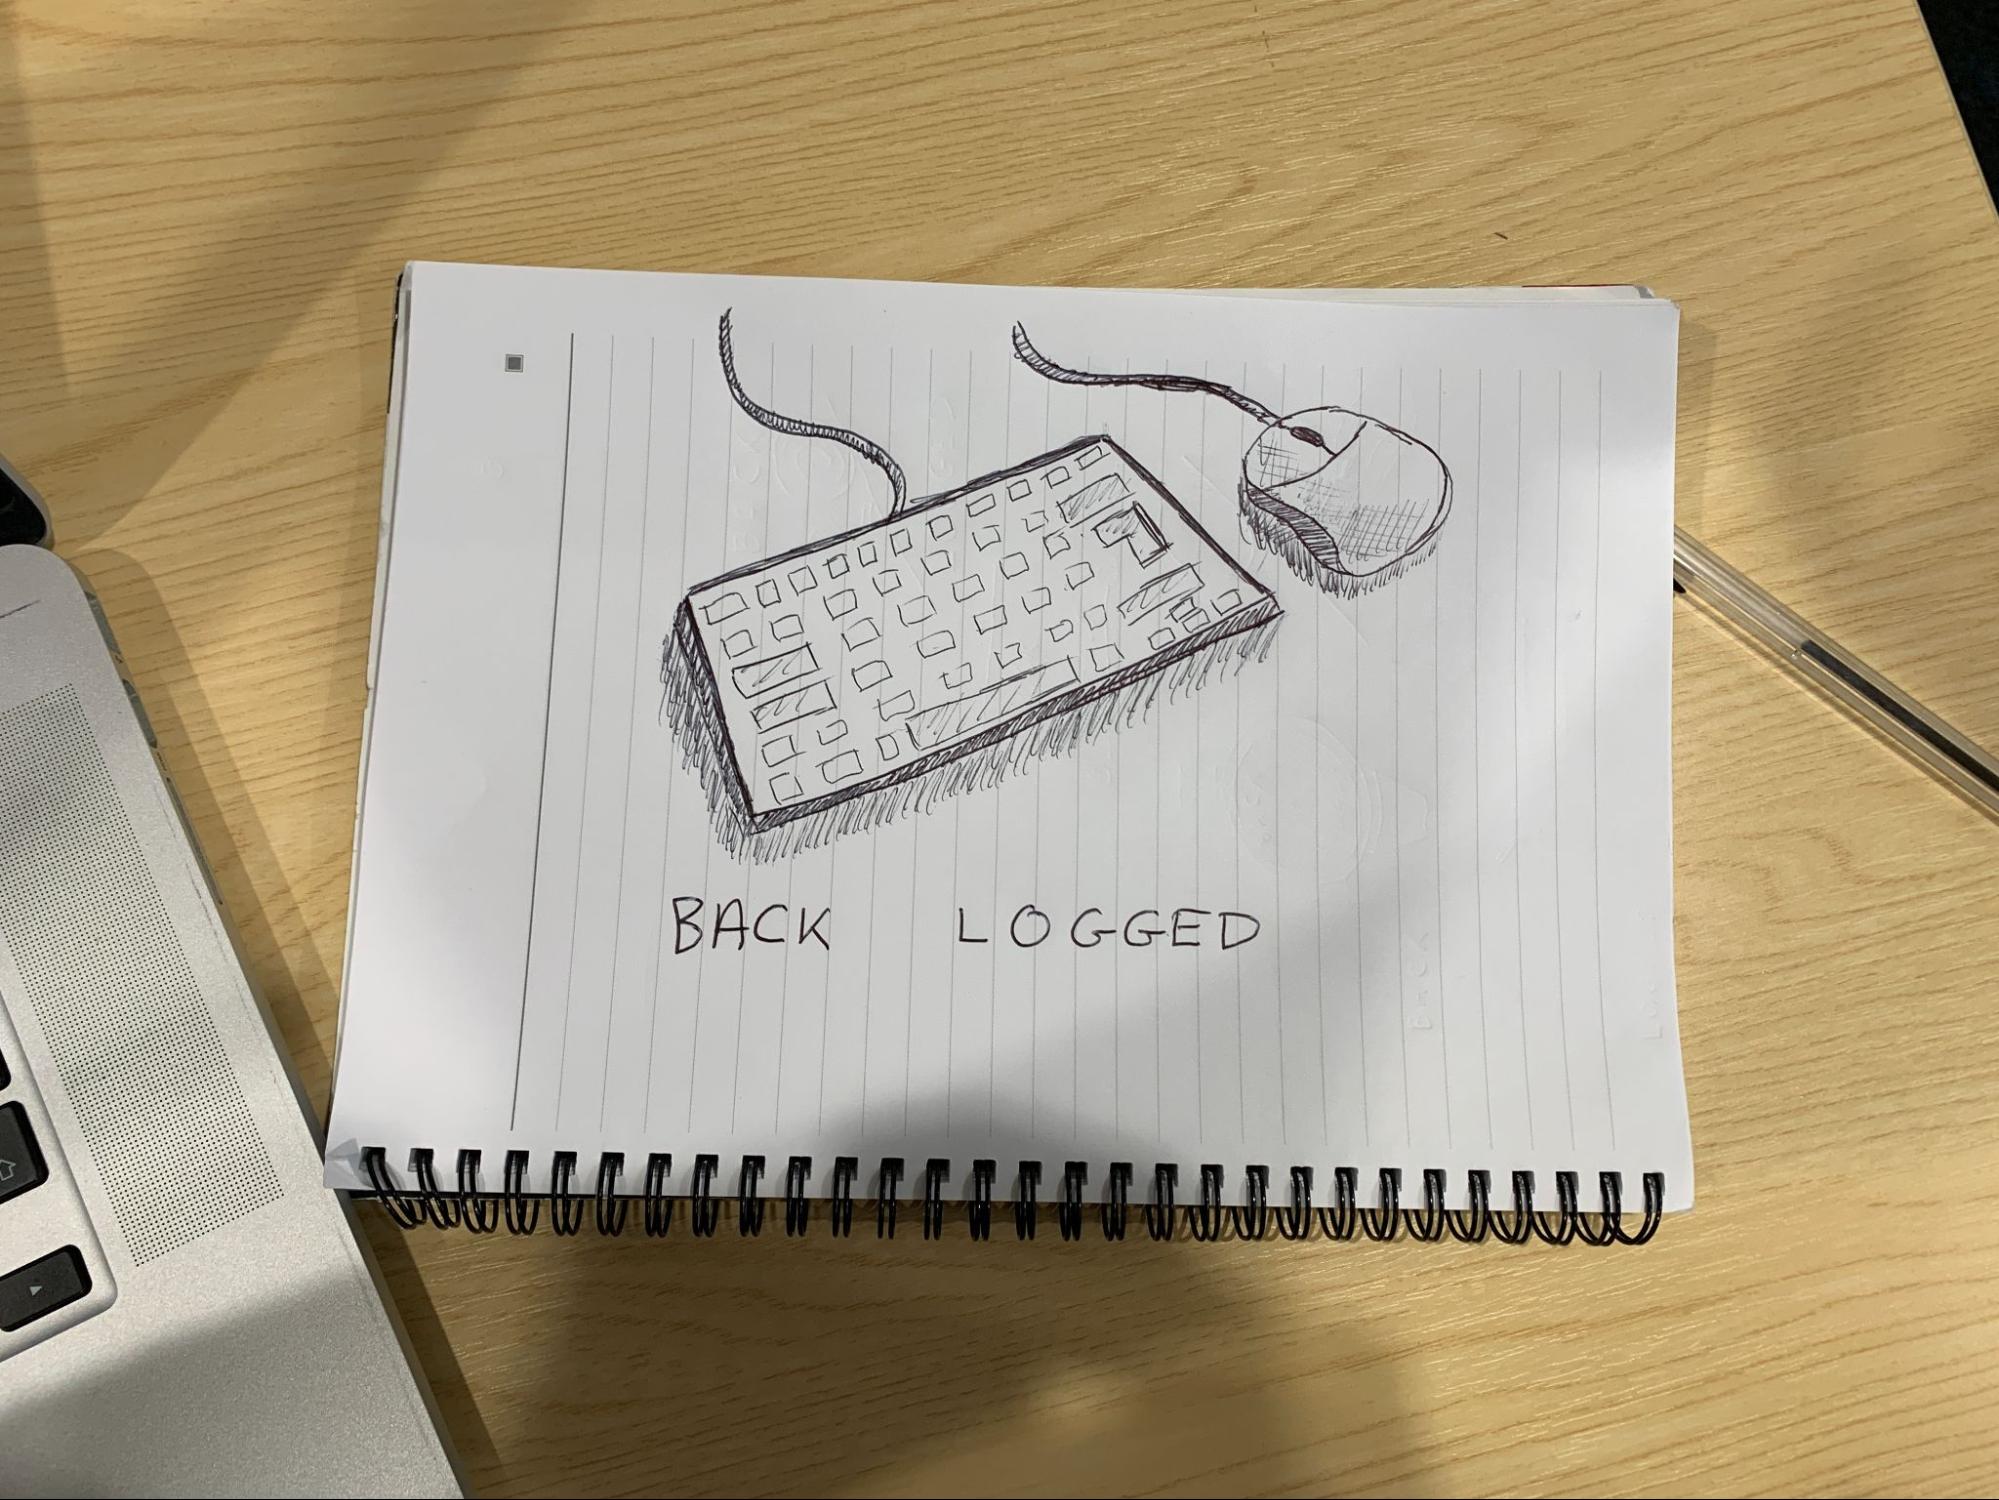 BACK LOGGED